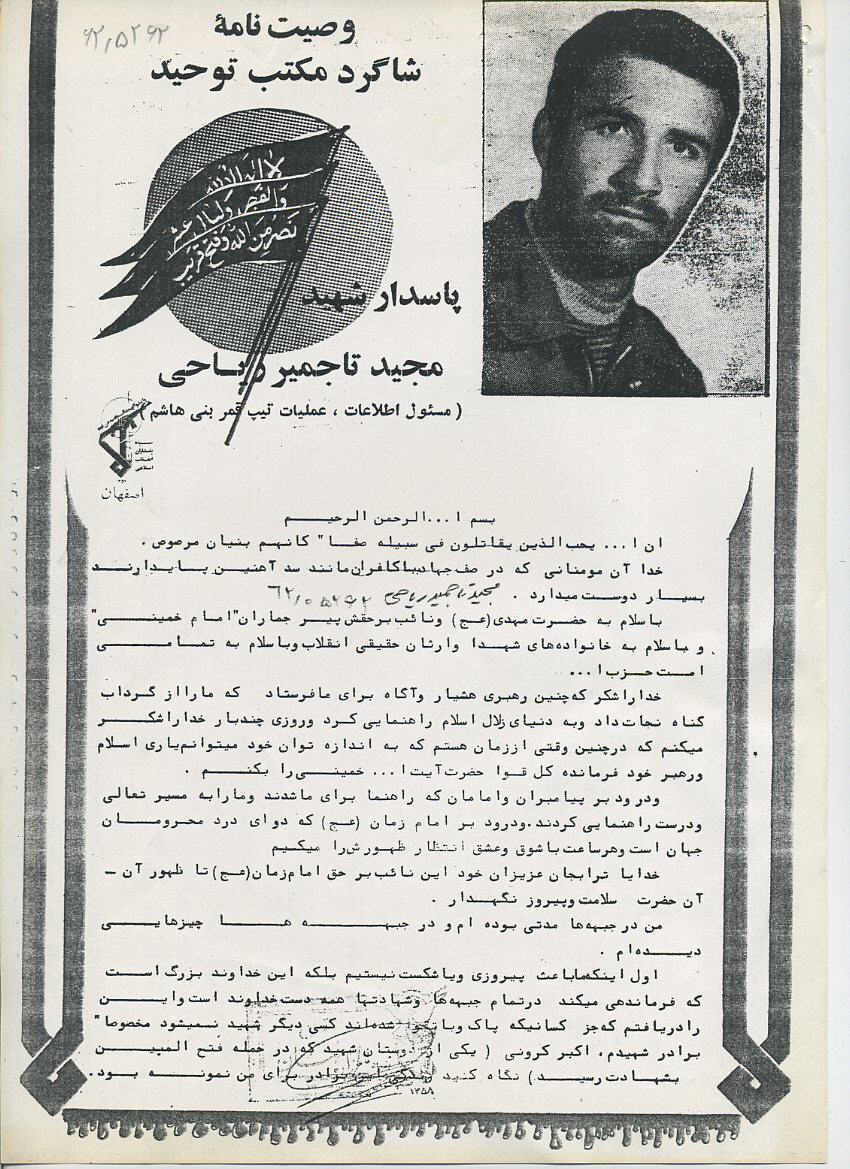 ۶۲٫۵۲۶۲
وصیت نامهٔ
شاگرد مکتب توحید
لا اله الا الله
والفجر ولیال عشر
نصر من الله و فتح قریب
پاسدار شهید
مجید تاجمیر ریاحی
( مسئول اطلاعات ، عملیات تیپ قمر بنی هاشم )
سپاه
پاسداران
انقلاب
اسلامی
اصفهان
بسم ا...الرحمن الرحیم
ان ا... یحب الذین یقاتلون فی سبیله صفا" کانهم بنیان مرصوص .
خدا آن مومنانی که در صف جهاد با کافران مانند سد آهنین پایدارند
بسیار دوست میدارد . مجید تاجمیر ریاحی
باسلام به حضرت مهدی(عج) ونائب برحقش پیر جماران"امام خمینی"
و باسلام به خانواده‌های شهدا وارثان حقیقی انقلاب وباسلام به تمامی
امت حزب ا...
خدا راشکر که چنین رهبری هشیار وآگاه برای مافرستاد که مارا از گرداب
گناه نجات داد وبه دنیای زلال اسلام راهنمایی کرد وروزی چندبار خدا راشکر
میکنم که درچنین وقتی اززمان هستم که به اندازه توان خود میتوانم یاری اسلام
ورهبر خود فرمانده کل قوا حضرت آیت ا... خمینی را بکنم .
ودرود بر پیامبران وامامان که راهنما برای ماشدند ومارا به مسیر تعالی
ودرست راهنمایی کردند.ودرود بر امام زمان (عج) که دوای درد محرومان
جهان است وهرساعت باشوق وعشق انتظار ظهورش را میکنیم
خدایا ترابجان عزیزان خود این نائب بر حق امام زمان(عج) تا ظهور آن -
آن حضرت سلامت وپیروز نگهدار .
من در جبهه‌ها مدتی بوده ام و در جبهه ها چیزهایی
دیده‌ام .
اول اینکه ماباعث پیروزی ویا شکست نیستیم بلکه این خداوند بزرگ است
که فرماندهی میکند درتمام جبهه‌ها وشهادتها همه دست خداوند است واین
رادریافتم که جز کسانیکه پاک وبا شده‌اند کسی دیگر شهید نمیشود مخصوصا"
برادر شهیدم، اکبر کرونی ( یکی از دوستان شهید که در حمله فتح المبین
بشهادت رسید) نگاه کنید زندگی این برادر برای من نمونه بود.
۱۳۵۸